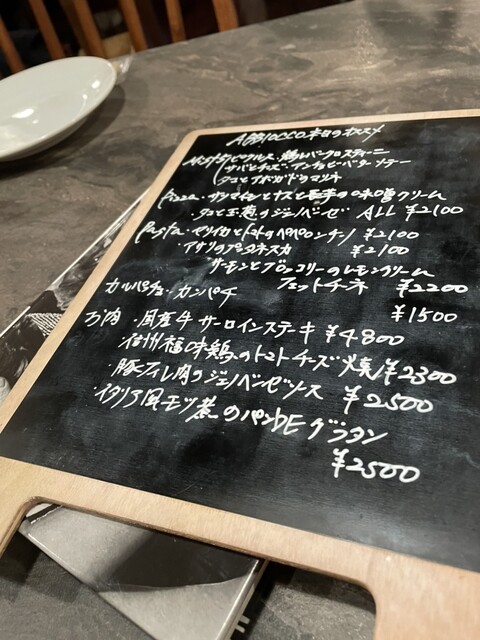 ABBIOCCO本日のオススメ
ピクルス・鶏レバークロスティーニ
サバとチーズ・アンチョビーバターソテー
タコとアボカドのマリネ
Pizza・サツマイモとナスと長芋の味噌クリーム
・タコと玉葱のジェノベーゼ ALL ¥2100
Pasta・ヤリイカとトマトのペペロンチーノ ¥2100
・アサリのプッタネスカ ¥2100
・サーモンとブロッコリーのレモンクリーム
フェットチーネ ¥2200
カルパッチョ・カンパチ ¥1500
お肉・国産牛サーロインステーキ ¥4800
・信州福味鶏のトマトチーズ焼 ¥2300
・豚ヒレ肉のジェノベーゼソース ¥2500
・イタリア風モツ煮のパングラタン
¥2500